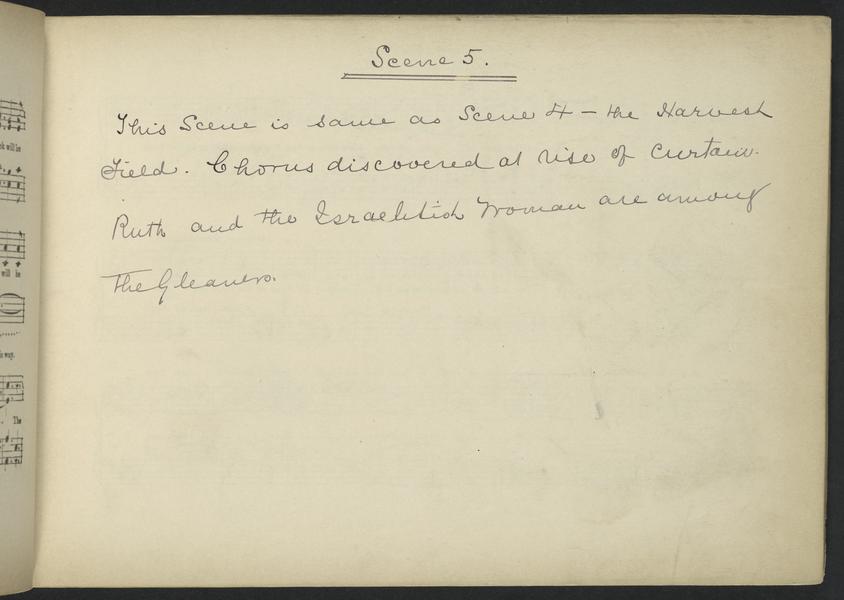 Scene 5.
This Scene is same as Scene 4 – the Harvest
Field. Chorus discovered at rise of Curtain.
Ruth and the Israelitish Woman are among
the Gleaners.
ck will be
will be
is way.
The